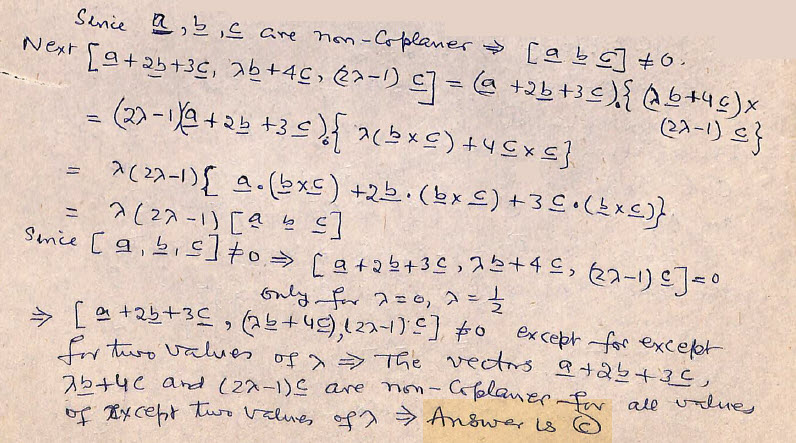 Since a, b, c are non-Coplaner ⇒ [a b c] ≠ 0.
Next [a+2b+3c, λb+4c, (2λ-1) c] = (a +2b+3c).{(λb+4c)×
(2λ-1) c}
= (2λ-1)(a+2b+3c).{λ(b×c)+4c×c}
= λ(2λ-1){a.(b×c)+2b.(b×c)+3c.(b×c)}
= λ(2λ-1)[a b c]
Since [a, b, c] ≠ 0 ⇒ [a+2b+3c, λb+4c, (2λ-1) c] = 0
only for λ=0, λ=1/2
⇒ [a+2b+3c, (λb+4c), (2λ-1) c] ≠ 0 except for except
for two values of λ ⇒ The vectors a+2b+3c,
λb+4c and (2λ-1)c are non-Coplaner for all values
of except two values of λ ⇒ Answer is (c)